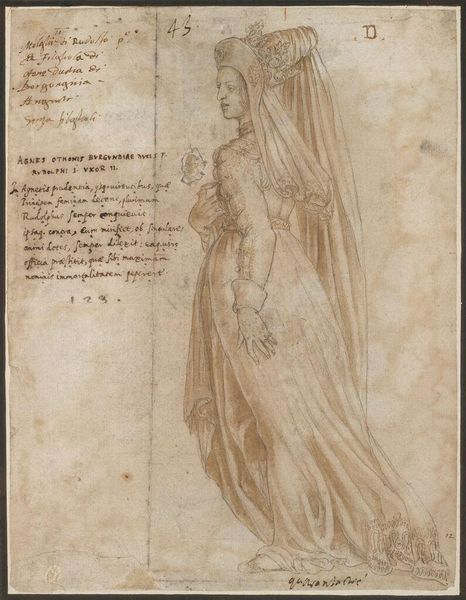 43
D
Moglie di Rudolfo p.º
et figliola di
otone Ducha di
Borgungnia
Angnese
senza figlioli
AGNES OTHONIS BVRGVNDIAE DVCIS F.
RVDOLPHI I. VXOR II.
In Agnetis prudentia, ijsq virtutibus, quae
Principem feminam decent, plurimum
Rudolphus semper conquievit
ipsaq. contra, eum mirifice, ob singulares
animi dotes, semper dilexit: eaq
officia praestitit, quae sibi maximam
nominis immortalitatem peperere
123.
12
quarantatre